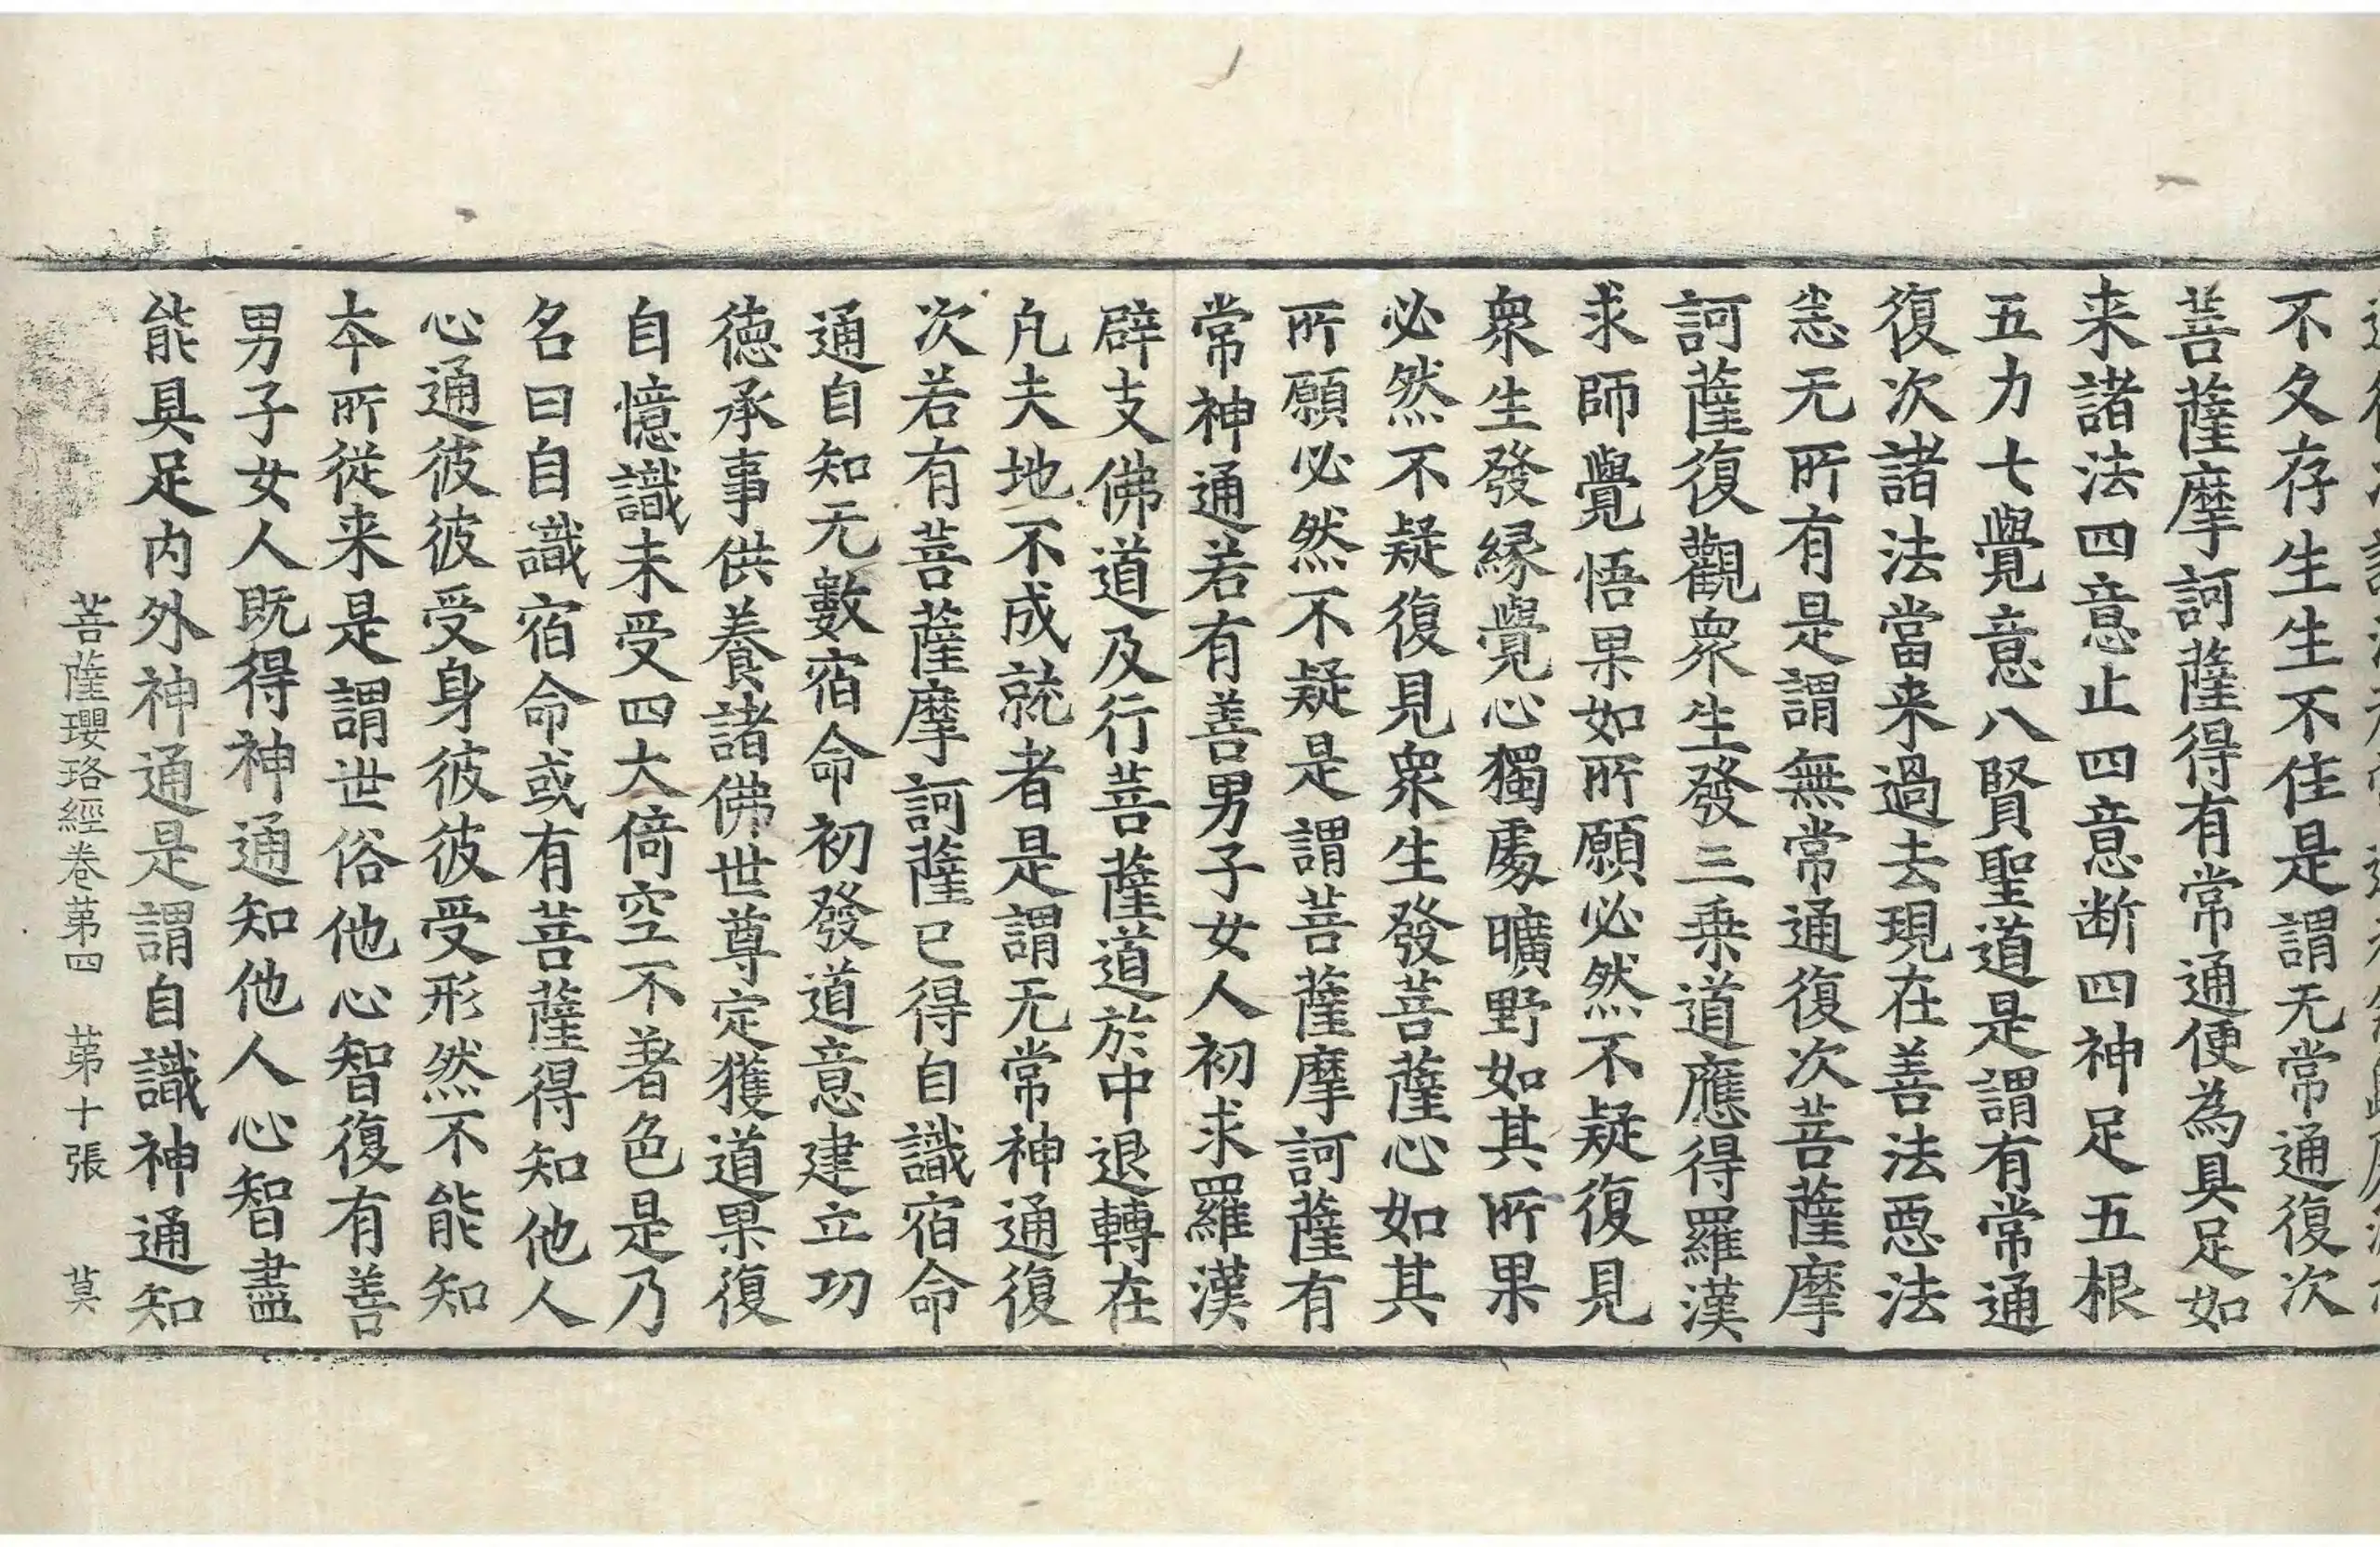 不久存生生不住是謂无常通復次
菩薩摩訶薩得有常通便為具足如
来諸法四意止四意断四神足五根
五力七覺意八賢聖道是謂有常通
復次諸法當来過去現在善法惡法
恙无所有是謂無常通復次菩薩摩
訶薩復觀衆生發三乗道應得羅漢
求師覺悟果如所願必然不疑復見
衆生發縁覺心獨處曠野如其所果
必然不疑復見衆生發菩薩心如其
所願必然不疑是謂菩薩摩訶薩有
常神通若有善男子女人初求羅漢
辟支佛道及行菩薩道於中退轉在
凡夫地不成就者是謂无常神通復
次若有菩薩摩訶薩已得自識宿命
通自知无數宿命初發道意建立功
德承事供養諸佛世尊定獲道果復
自憶識未受四大倚空不著色是乃
名曰自識宿命或有菩薩得知他人
心通彼彼受身彼彼受形然不能知
夲所從来是謂世俗他心智復有善
男子女人既得神通知他人心智盡
能具足内外神通是謂自識神通知
菩薩瓔珞經卷第四 第十張 莫